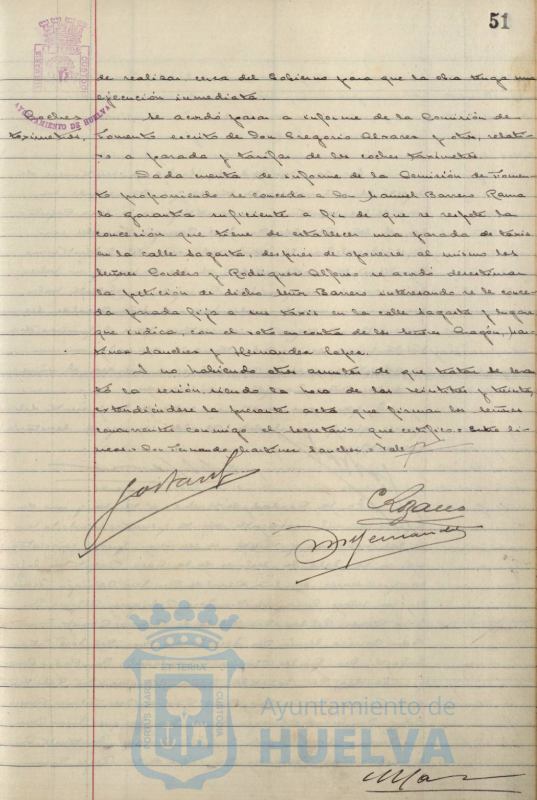 51
de realizar cerca del Gobierno para que la obra tenga una
ejecución inmediata.
Coches
taxímetros.
AYUNTAMIENTO DE HUELVA
Se acordó pasar a informe de la Comisión de
Fomento escrito de Don Gregorio Alvarez y otros, relati-
vo a parada y tarifas de los coches taxímetros.
Dada cuenta de informe de la Comisión de Fomen-
to proponiendo se conceda a Don Manuel Barrero Rama
la garantía suficiente a fin de que se respete la
concesión que tiene de establecer una parada de taxis
en la calle Sagasta, después de oponerse al mismo los
señores Cordero y Rodríguez Alfonso se acordó desestimar
la petición de dicho señor Barrero interesando se le conce-
da parada fija a sus taxis en la calle Sagasta y lugar
que indica, con el voto en contra de los señores Aragón, Mar-
tínez Sanchez y Hernandez Lopez.
Y no habiendo otros asuntos de que tratar se levan-
tó la sesión, siendo la hora de las veintitres y treinta,
extendiéndose la presente acta que firman los señores
concurrentes conmigo el Secretario que certifico. Entre li-
neas = Don Fernando Martinez Sanchez = Vale
C Lozano
Hernandez
PORTUS MARIS ET TERRÆ CUSTODIA
Ayuntamiento de
HUELVA